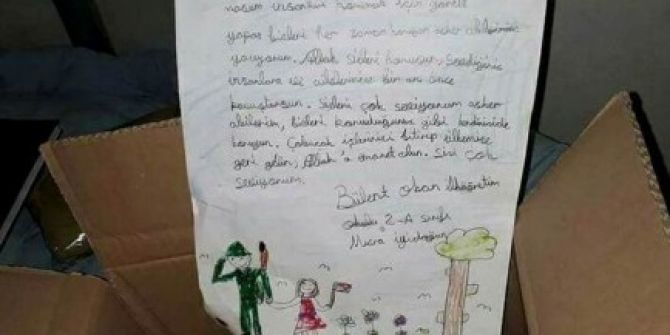 insanları korumak için
yapar bizleri her zaman koruyan asker abilerimize
yazıyorum. Allah sizleri korusun, sevdiğiniz
insanlara ve ailelerinize bir an önce
kavuştursun. Sizleri çok seviyorum asker
abilerim, bizleri koruduğunuz gibi kendinizide
koruyun. Çabucak işlerinizi bitirip ülkemize
geri gelin, Allah'a emanet olun. Sizi çok
seviyorum.
Bülent okan ilköğretim
okulu 2-A sınıfı